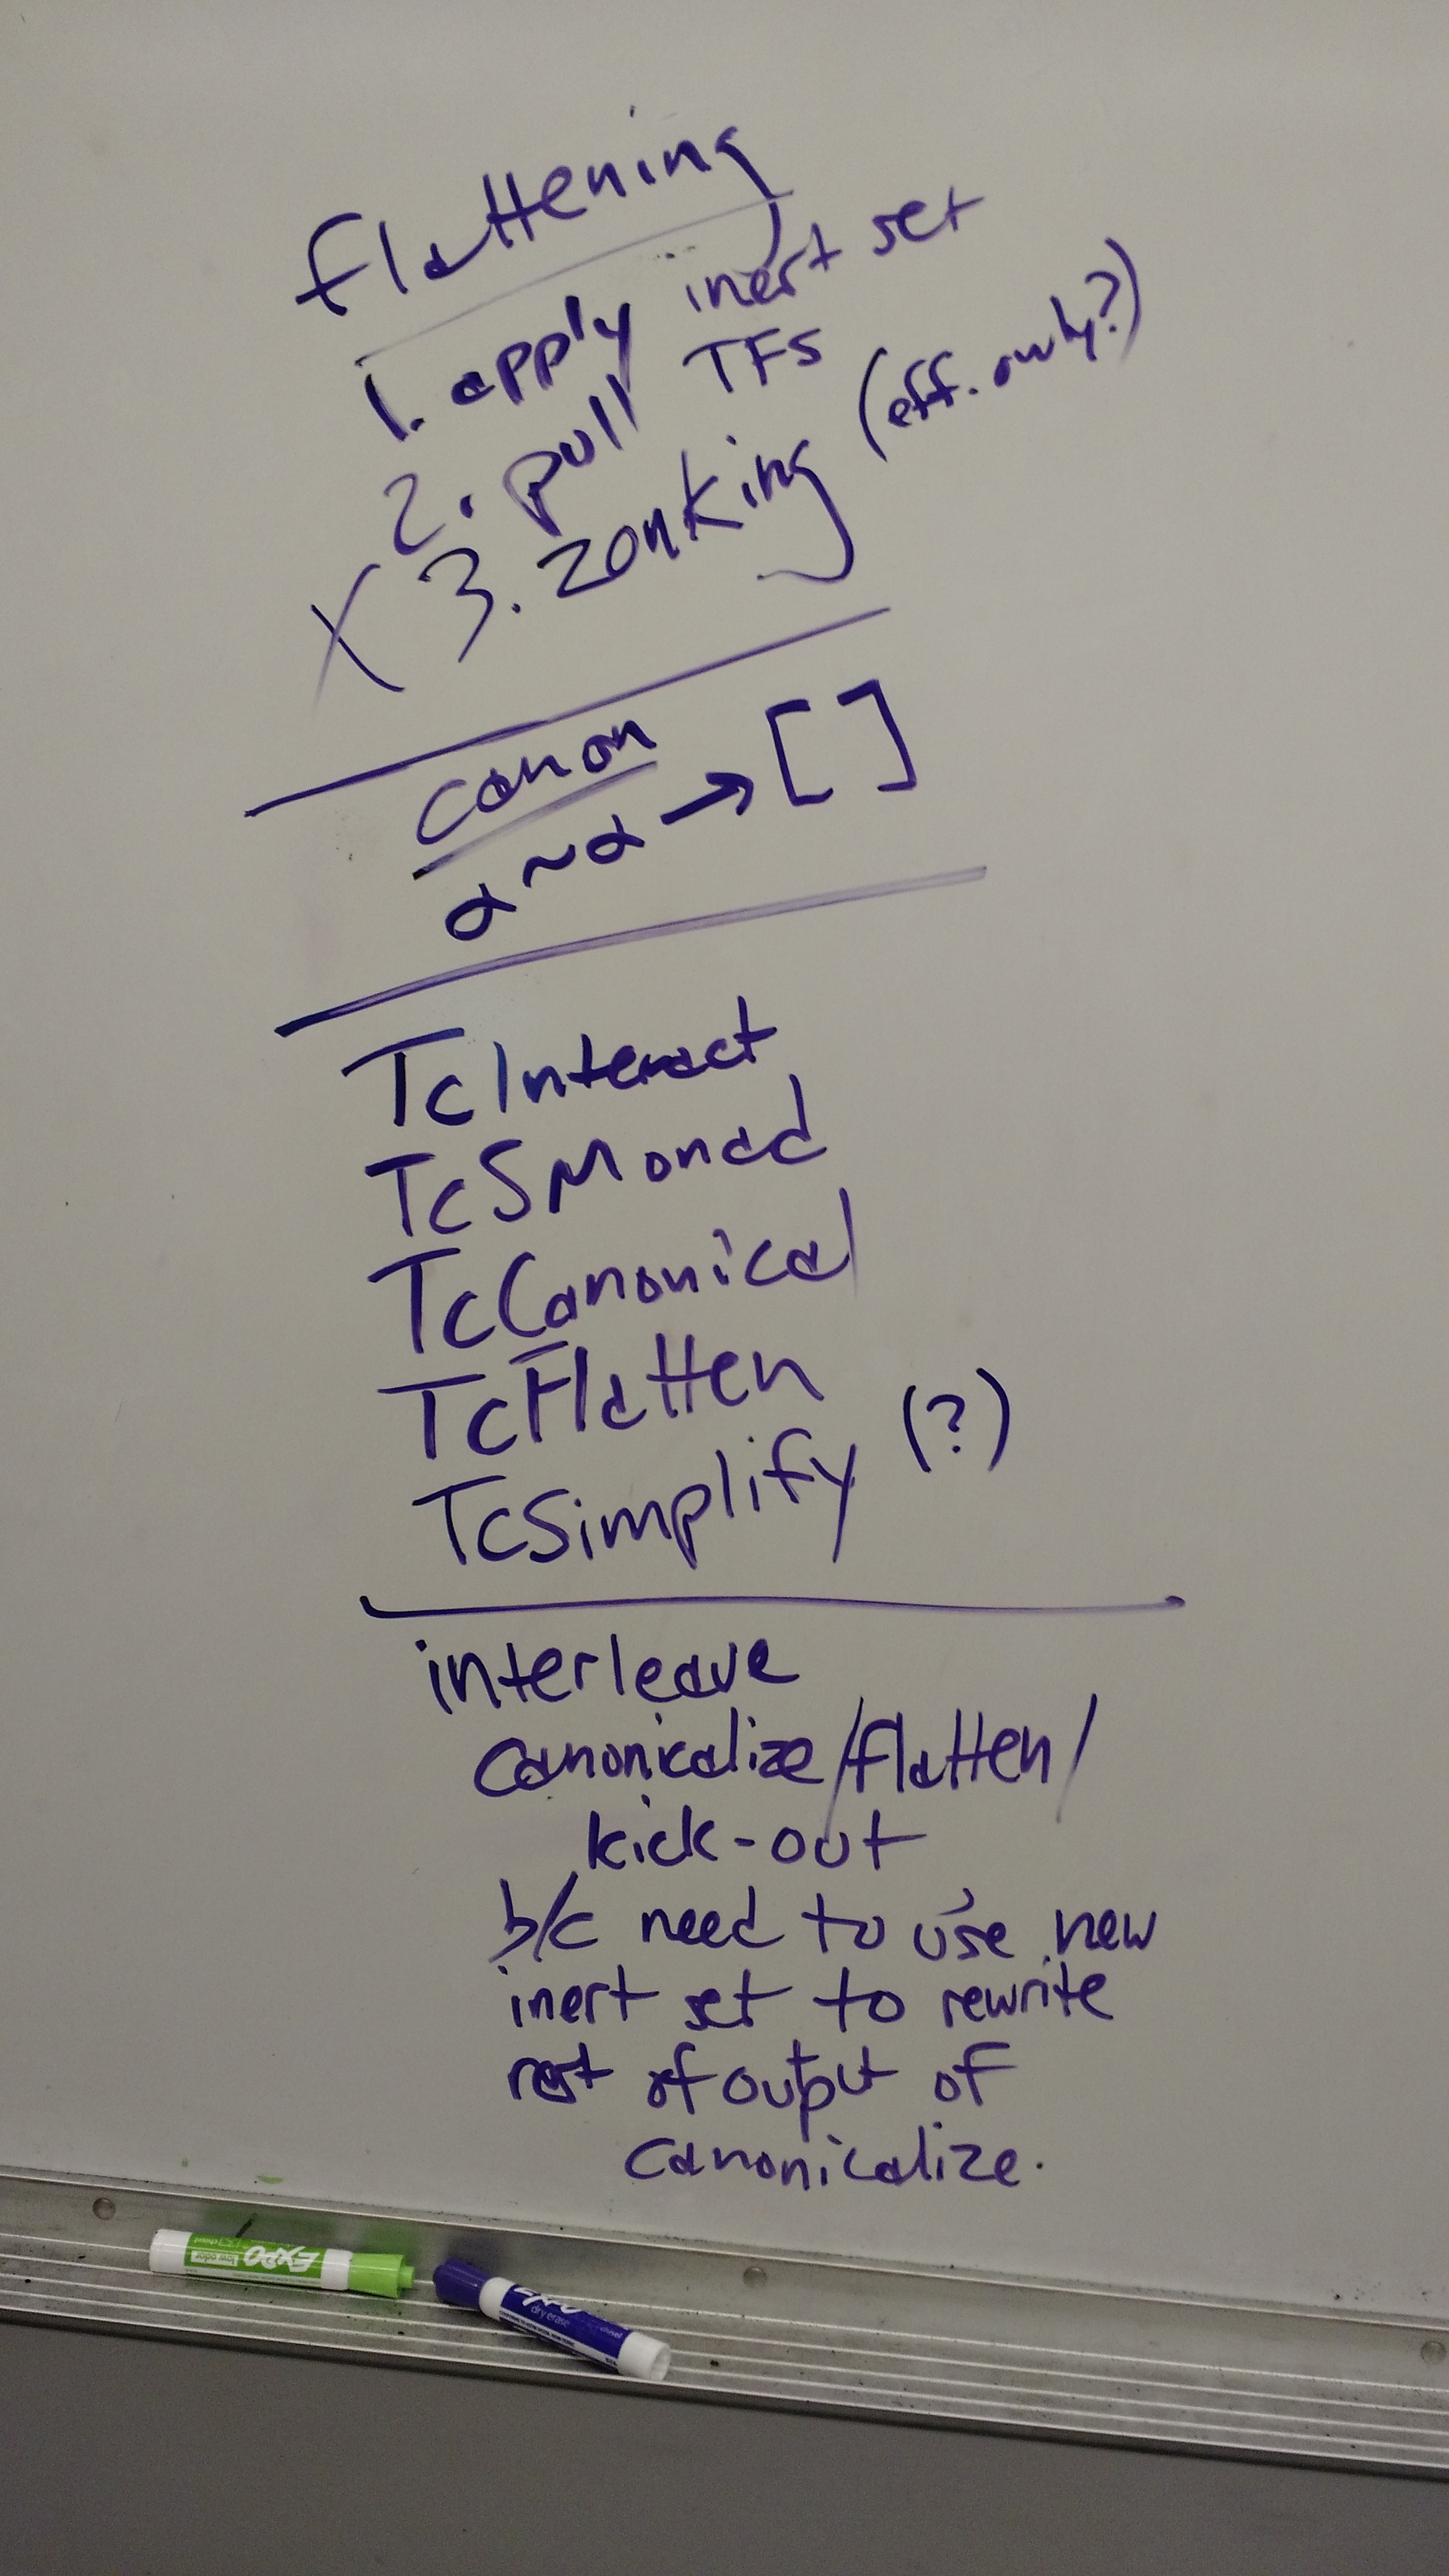 flattening
1. apply inert set
2. pull TFs
X 3. zonking (eff. only?)
canon
α ~ α → [ ]
TcInteract
TcSMonad
TcCanonical
TcFlatten
TcSimplify (?)
interleave
canonicalize/flatten/
kick-out
b/c need to use new
inert set to rewrite
rest of output of
canonicalize.
EXPO
low odor
EXPO
dry erase